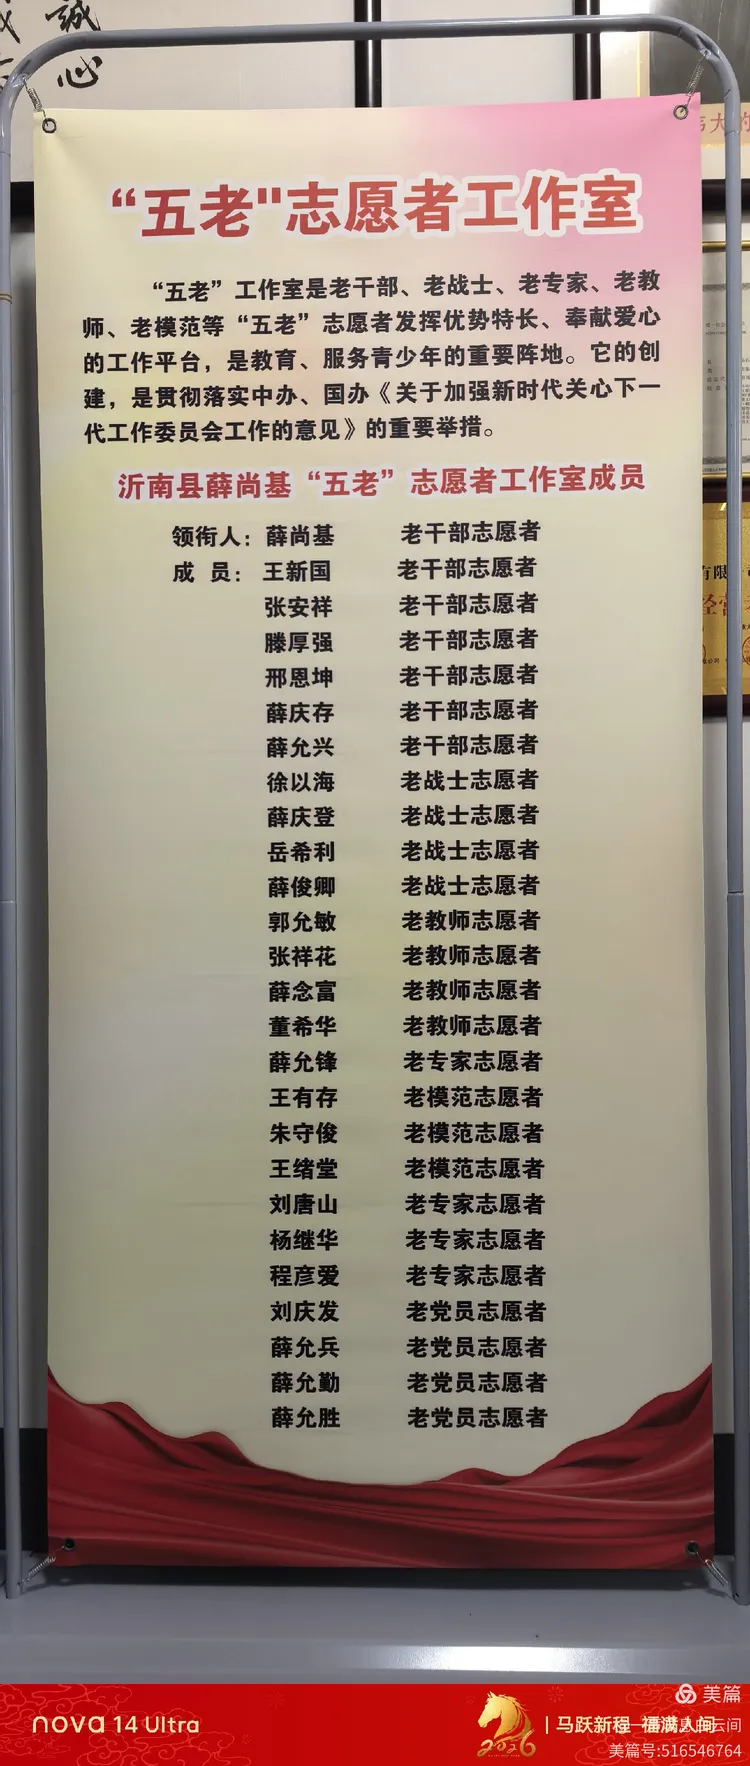 誠
心
“五老"志愿者工作室
“五老”工作室是老干部、老战士、老专家、老教
师、老模范等“五老”志愿者发挥优势特长、奉献爱心
的工作平台，是教育、服务青少年的重要阵地。它的创
建，是贯彻落实中办、国办《关于加强新时代关心下一
代工作委员会工作的意见》的重要举措。
沂南县薛尚基“五老”志愿者工作室成员
领衔人：薛尚基 老干部志愿者
成 员：王新国 老干部志愿者
张安祥 老干部志愿者
滕厚强 老干部志愿者
邢恩坤 老干部志愿者
薛庆存 老干部志愿者
薛允兴 老干部志愿者
徐以海 老战士志愿者
薛庆登 老战士志愿者
岳希利 老战士志愿者
薛俊卿 老战士志愿者
郭允敏 老教师志愿者
张祥花 老教师志愿者
薛念富 老教师志愿者
董希华 老教师志愿者
薛允锋 老专家志愿者
王有存 老模范志愿者
朱守俊 老模范志愿者
王绪堂 老模范志愿者
刘唐山 老专家志愿者
杨继华 老专家志愿者
程彦爱 老专家志愿者
刘庆发 老党员志愿者
薛允兵 老党员志愿者
薛允勤 老党员志愿者
薛允胜 老党员志愿者
伟大的
有限
经营
美篇
nova 14 Ultra
2026
马跃新程 福满人间
美篇号:516546764